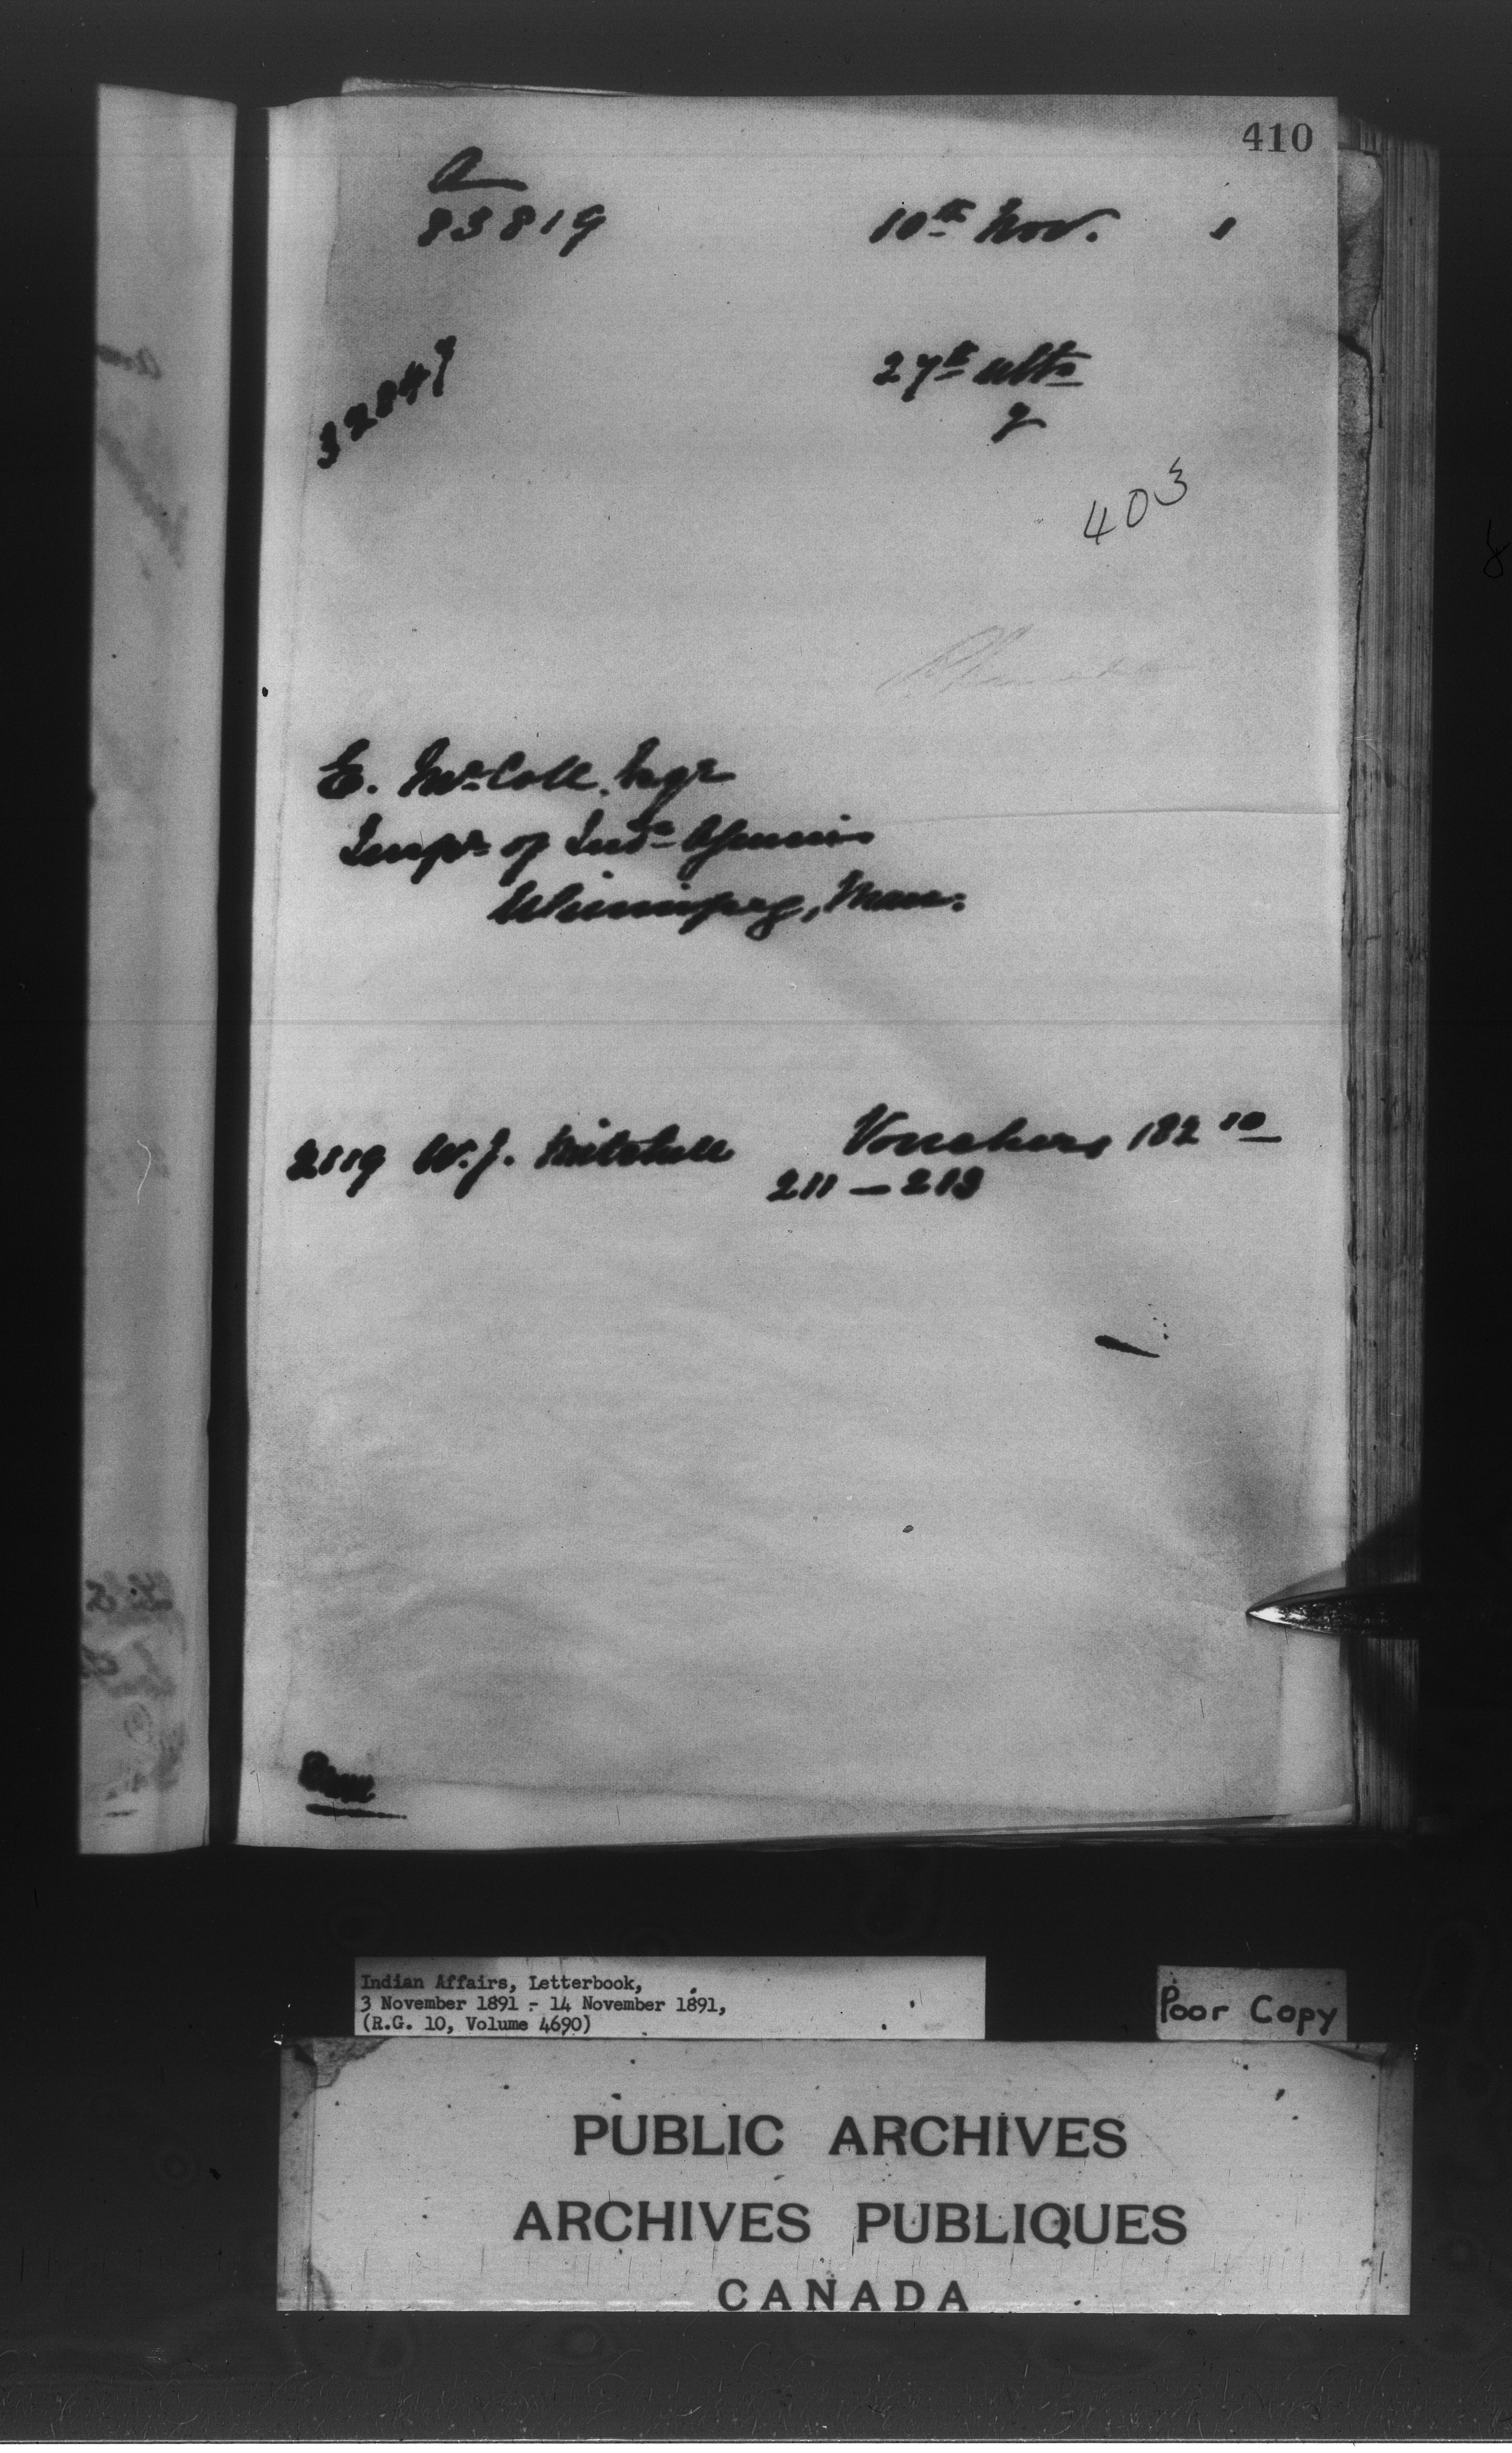 410
a
83819
10th Nov. 1
27th ulto
403
E. McColl, Esqr
Inspr of Indn Agencies
Winnipeg, Man.
2119 W.J. Mitchell Vouchers 182 10
211 — 213
Indian Affairs, Letterbook,
3 November 1891 - 14 November 1891,
(R.G. 10, Volume 4690)
Poor Copy
PUBLIC ARCHIVES
ARCHIVES PUBLIQUES
CANADA